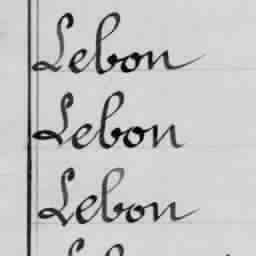 Lebon
Lebon
Lebon